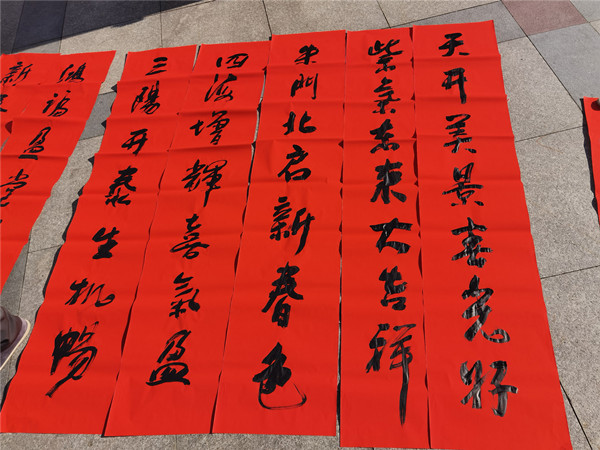 天开美景春光好
紫氣东来大吉祥
朱门北启新春色
四海增輝喜氣盈
三陽开泰生机暢
鸿福盈堂
新